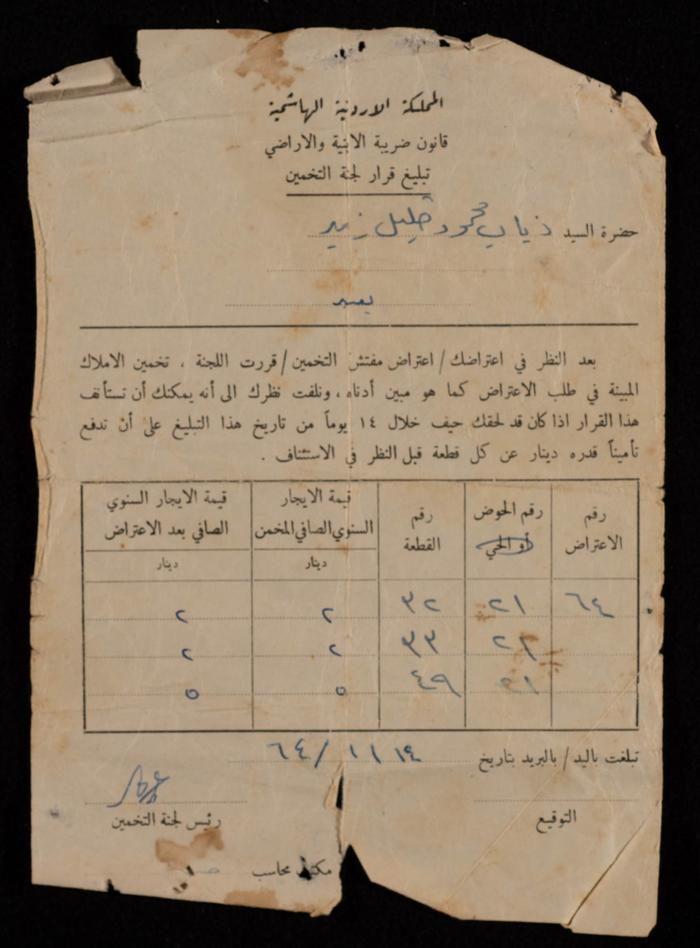 المملكة الاردنية الهاشمية
قانون ضريبة الابنية والاراضي
تبليغ قرار لجنة التخمين
حضرة السيد ذياب محمود خليل زيد
يعبد
بعد النظر في اعتراضك / اعتراض مفتش التخمين / قررت اللجنة ، تخمين الاملاك
المبينة في طلب الاعتراض كما هو مبين أدناه ، ونلفت نظرك الى أنه يمكنك أن تستأنف
هذا القرار اذا كان قد لحقك حيف خلال ١٤ يوماً من تاريخ هذا التبليغ على أن تدفع
تأميناً قدره دينار عن كل قطعة قبل النظر في الاستئناف .
رقم الاعتراض
رقم الحوض أو الحي
رقم القطعة
قيمة الايجار السنوي الصافي المخمن
قيمة الايجار السنوي الصافي بعد الاعتراض
دينار
دينار
٦٤ ٢١ ٣٢ ٢ ٢
٢١ ٣٣ ٢ ٢
٢١ ٤٩ ٥ ٥
تبلغت باليد / بالبريد بتاريخ ٦٤/١١/١٤
التوقيع
رئيس لجنة التخمين
محاسب